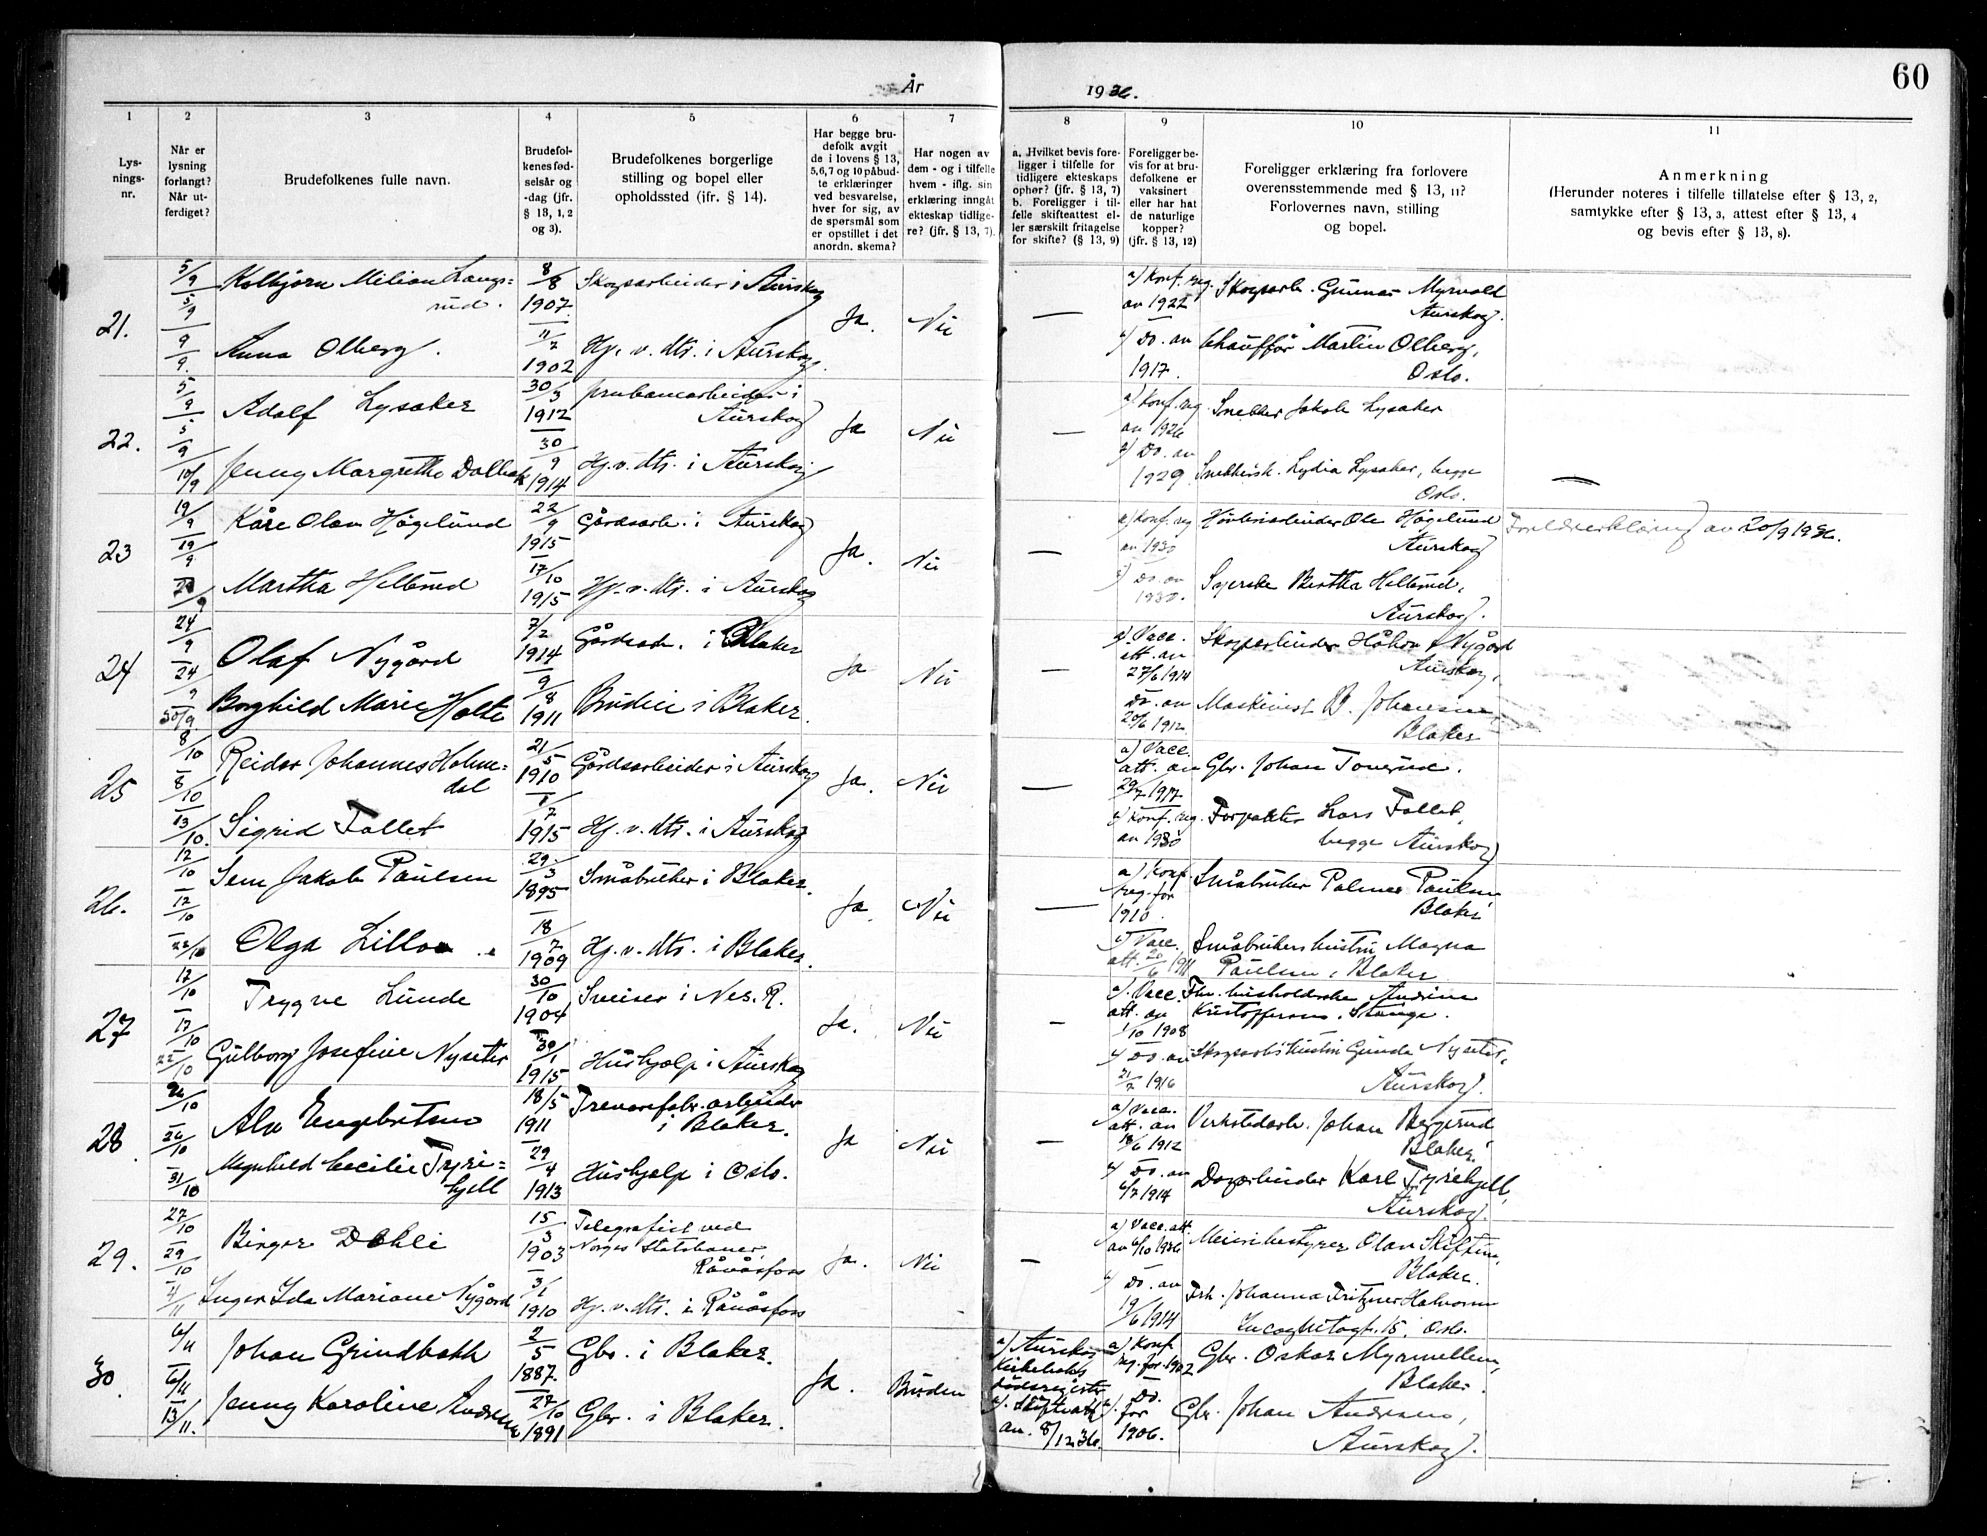 År 1936.
60
1
2
3
4
5
6
7
8
9
10
11
Lys-
nings-
nr.
Når er
lysning
forlangt?
Når ut-
ferdiget?
Brudefolkenes fulle navn.
Brudefol-
kenes fød-
selsår og
-dag (jfr.
§ 13, 1, 2
og 3).
Brudefolkenes borgerlige
stilling og bopel eller
opholdssted (jfr. § 14).
Har begge bru-
defolk avgit
de i lovens § 13,
5, 6, 7 og 10 påbud-
te erklæringer
ved besvarelse,
hver for sig, av
de spørsmål som
er opstillet i det
anordn. skema?
Har nogen av
dem - og i tilfelle
hvem - iflg. sin
erklæring inngåt
ekteskap tidlige-
re? (jfr. § 13, 7).
a. Hvilket bevis fore-
ligger i tilfelle for
tidligere ekteskaps
ophør? (jfr. § 13, 7)
b. Foreligger i til-
felle skifteattest el-
ler særskilt fritagelse
for skifte? (§ 13, 9)
Foreligger be-
vis for at bru-
defolkene er
vaksinert
eller har hat
de naturlige
kopper?
(jfr. § 13, 12)
Foreligger erklæring fra forlovere
overensstemmende med § 13, 11?
Forlovernes navn, stilling
og bopel.
Anmerkning
(Herunder noteres i tilfelle tillatelse efter § 13, 2,
samtykke efter § 13, 3, attest efter § 13, 4
og bevis efter § 13, 8).
21.
5/9 5/9 9/9.
Kolbjørn Milian Langs-
rud.
8/8 1907.
Skogsarbeider i Aurskog
Anna Olberg.
11/2 1902
Hj. v. dts. i Aurskog.
Ja. Nei —
a) Konf. reg.
av 1922
Skogsarb. Gunnar Myrvold
Aurskog.
b) Do. av
1917.
Chauffør Martin Olberg,
Oslo.
22.
5/9 5/9 10/9
Adolf Lysaker
30/3 1912
Jernbanearbeider i
Aurskog
Jenny Margrethe Dalbak
30/9 1914
Hj. v. dts. i Aurskog
Ja Nei —
a) Konf. reg
av 1926
Snekker Jakob Lysaker
b) Do. av
1929
Snekkersk. Lydia Lysaker, begge
Oslo.
—
23
19/9 19/9 20/9
Kåre Olav Høgelund
22/9 1915
Gårdsarb. i Aurskog
Martha Hellerud
17/10 1915
Hj. v. dts. i Aurskog
Ja. Nei —
a) Konf. reg
av 1930
Høvleriarbeider Ole Høgelund
Aurskog
b) Do. av
1930.
Syerske Bertha Hellerud,
Aurskog.
Foreldreerklæring av 20/9 1936.
24
24/9 24/9 30/9
Olaf Nygård
7/2 1914
Gårdsarb. i Blaker
Borghild Marie Holte
9/8 1911
Budeie i Blaker.
Ja Nei —
a) Vacc.
att. av
27/6 1914
Skogsarbeider Håkon Nygård
Aurskog.
Do. av
20/6 1912
Maskinist B. Johansen
Blaker
25
8/10 8/10 13/10.
Reidar Johannes Holme-
dal
21/5 1910
Gårdsarbeider i Aurskog
Sigrid Tollet
1/7 1915
Hj. v. dts. i Aurskog
Ja. Nei —
a) Vacc.
att. av
29/7 1917
Gbr. Johan Tonerud.
b) Konf. reg.
av 1930
Forpakter Lars Tollet,
begge Aurskog
26.
12/10 12/10 22/10
Sem Jakob Paulsen
29/3 1895
Småbruker i Blaker.
Olga Lilloe.
18/7 1909
Hj. v. dts. i Blaker.
Ja Nei —
a) Konf.
reg. for
1910.
Småbruker Palmer Paulsen
Blaker
b) Vacc.
att. 20/6 1911
Småbrukers hustru Magna
Paulsen i Blaker
27
17/10 17/10 22/10
Trygve Lunde
30/10 1904
Sveiser i Nes. R.
Gulborg Josefine Nyseter
30/1 1915
Hushjelp i Aurskog
Ja. Nei —
a). Vacc.
att. av
1/10 1908
Fhv. husholderske Andrine
Kristoffersen, Stange.
b) Do. av
21/7 1916
Skogsarb.s hustru Gunda Nyseter,
Aurskog.
28
26/10 26/10 31/10
Alv Engebretsen
18/5 1911
Trevarefabr. arbeider
i Blaker.
Magnhild Cecilie Tyri-
hjell
29/4 1913
Hushjelp i Oslo.
Ja Nei —
a) Vacc.
att. av
18/6 1912
Verkstedarb. Johan Bergerud
Blaker.
b) Do. av
6/7 1914
Dagarbeider Karl Tyrihjell,
Aurskog.
29.
27/10 29/10 4/11
Birger Dehli
15/3 1903
Telegrafist ved
Norges Statsbaner,
Rånåsfoss
Inger Ida Mariane Nygård
3/1 1910
Hj. v. dts. i Rånåsfoss
Ja. Nei —
a) Vacc. att.
av 6/10 1936
Meieribestyrer Olav Skiftun,
Blaker.
b) Do. av
19/6 1914
Frk. Johanna Fritzner Halvorsen
Incognitogt. 15, Oslo.
30.
6/11 6/11 13/11.
Johan Grindbakk
2/5 1887.
Gbr. i Blaker.
Jenny Karoline Andersen
27/10 1891
Gbr. i Blaker.
Ja. Bruden
a) Aurskog
Kirkeboks
dødsregister
b). Skifteatt.
av. 8/12 36.
a) Konf.
reg. for 1902
Gbr. Oskar Myrmellem,
Blaker.
b). Do.
for
1906.
Gbr. Johan Andersen,
Aurskog.